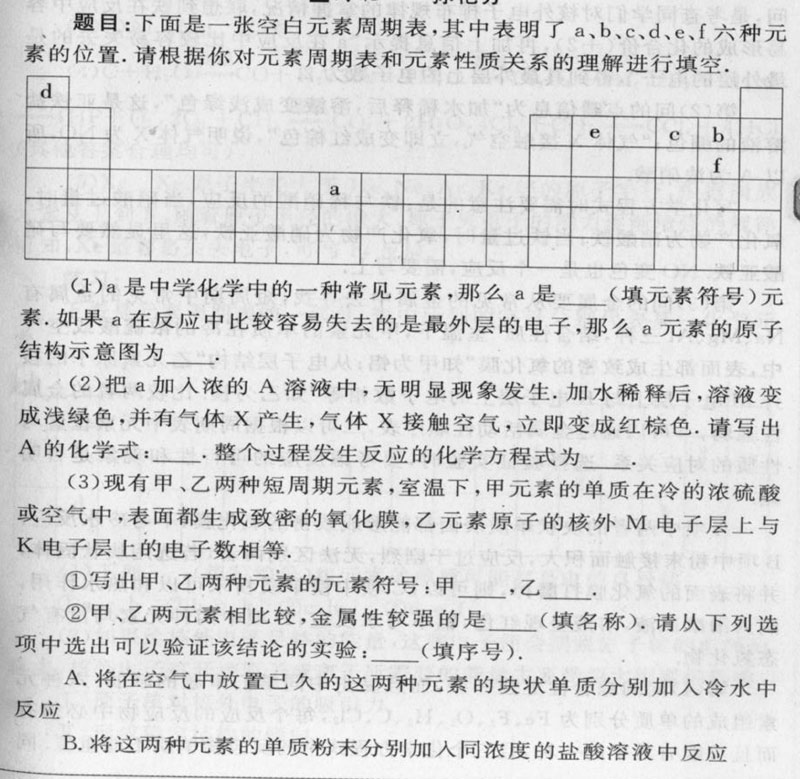 题目:下面是一张空白元素周期表,其中表明了 a、b、c、d、e、f 六种元
素的位置.请根据你对元素周期表和元素性质关系的理解进行填空.
d
e c b
f
a
(1)a 是中学化学中的一种常见元素,那么 a 是____(填元素符号)元
素.如果 a 在反应中比较容易失去的是最外层的电子,那么 a 元素的原子
结构示意图为____.
(2)把 a 加入浓的 A 溶液中,无明显现象发生.加水稀释后,溶液变
成浅绿色,并有气体 X 产生,气体 X 接触空气,立即变成红棕色.请写出
A 的化学式:____.整个过程发生反应的化学方程式为____.
(3)现有甲、乙两种短周期元素,室温下,甲元素的单质在冷的浓硫酸
或空气中,表面都生成致密的氧化膜,乙元素原子的核外 M 电子层上与
K 电子层上的电子数相等.
①写出甲、乙两种元素的元素符号:甲____,乙____.
②甲、乙两元素相比较,金属性较强的是____(填名称),请从下列选
项中选出可以验证该结论的实验:____(填序号).
A. 将在空气中放置已久的这两种元素的块状单质分别加入冷水中
反应
B. 将这两种元素的单质粉末分别加入同浓度的盐酸溶液中反应